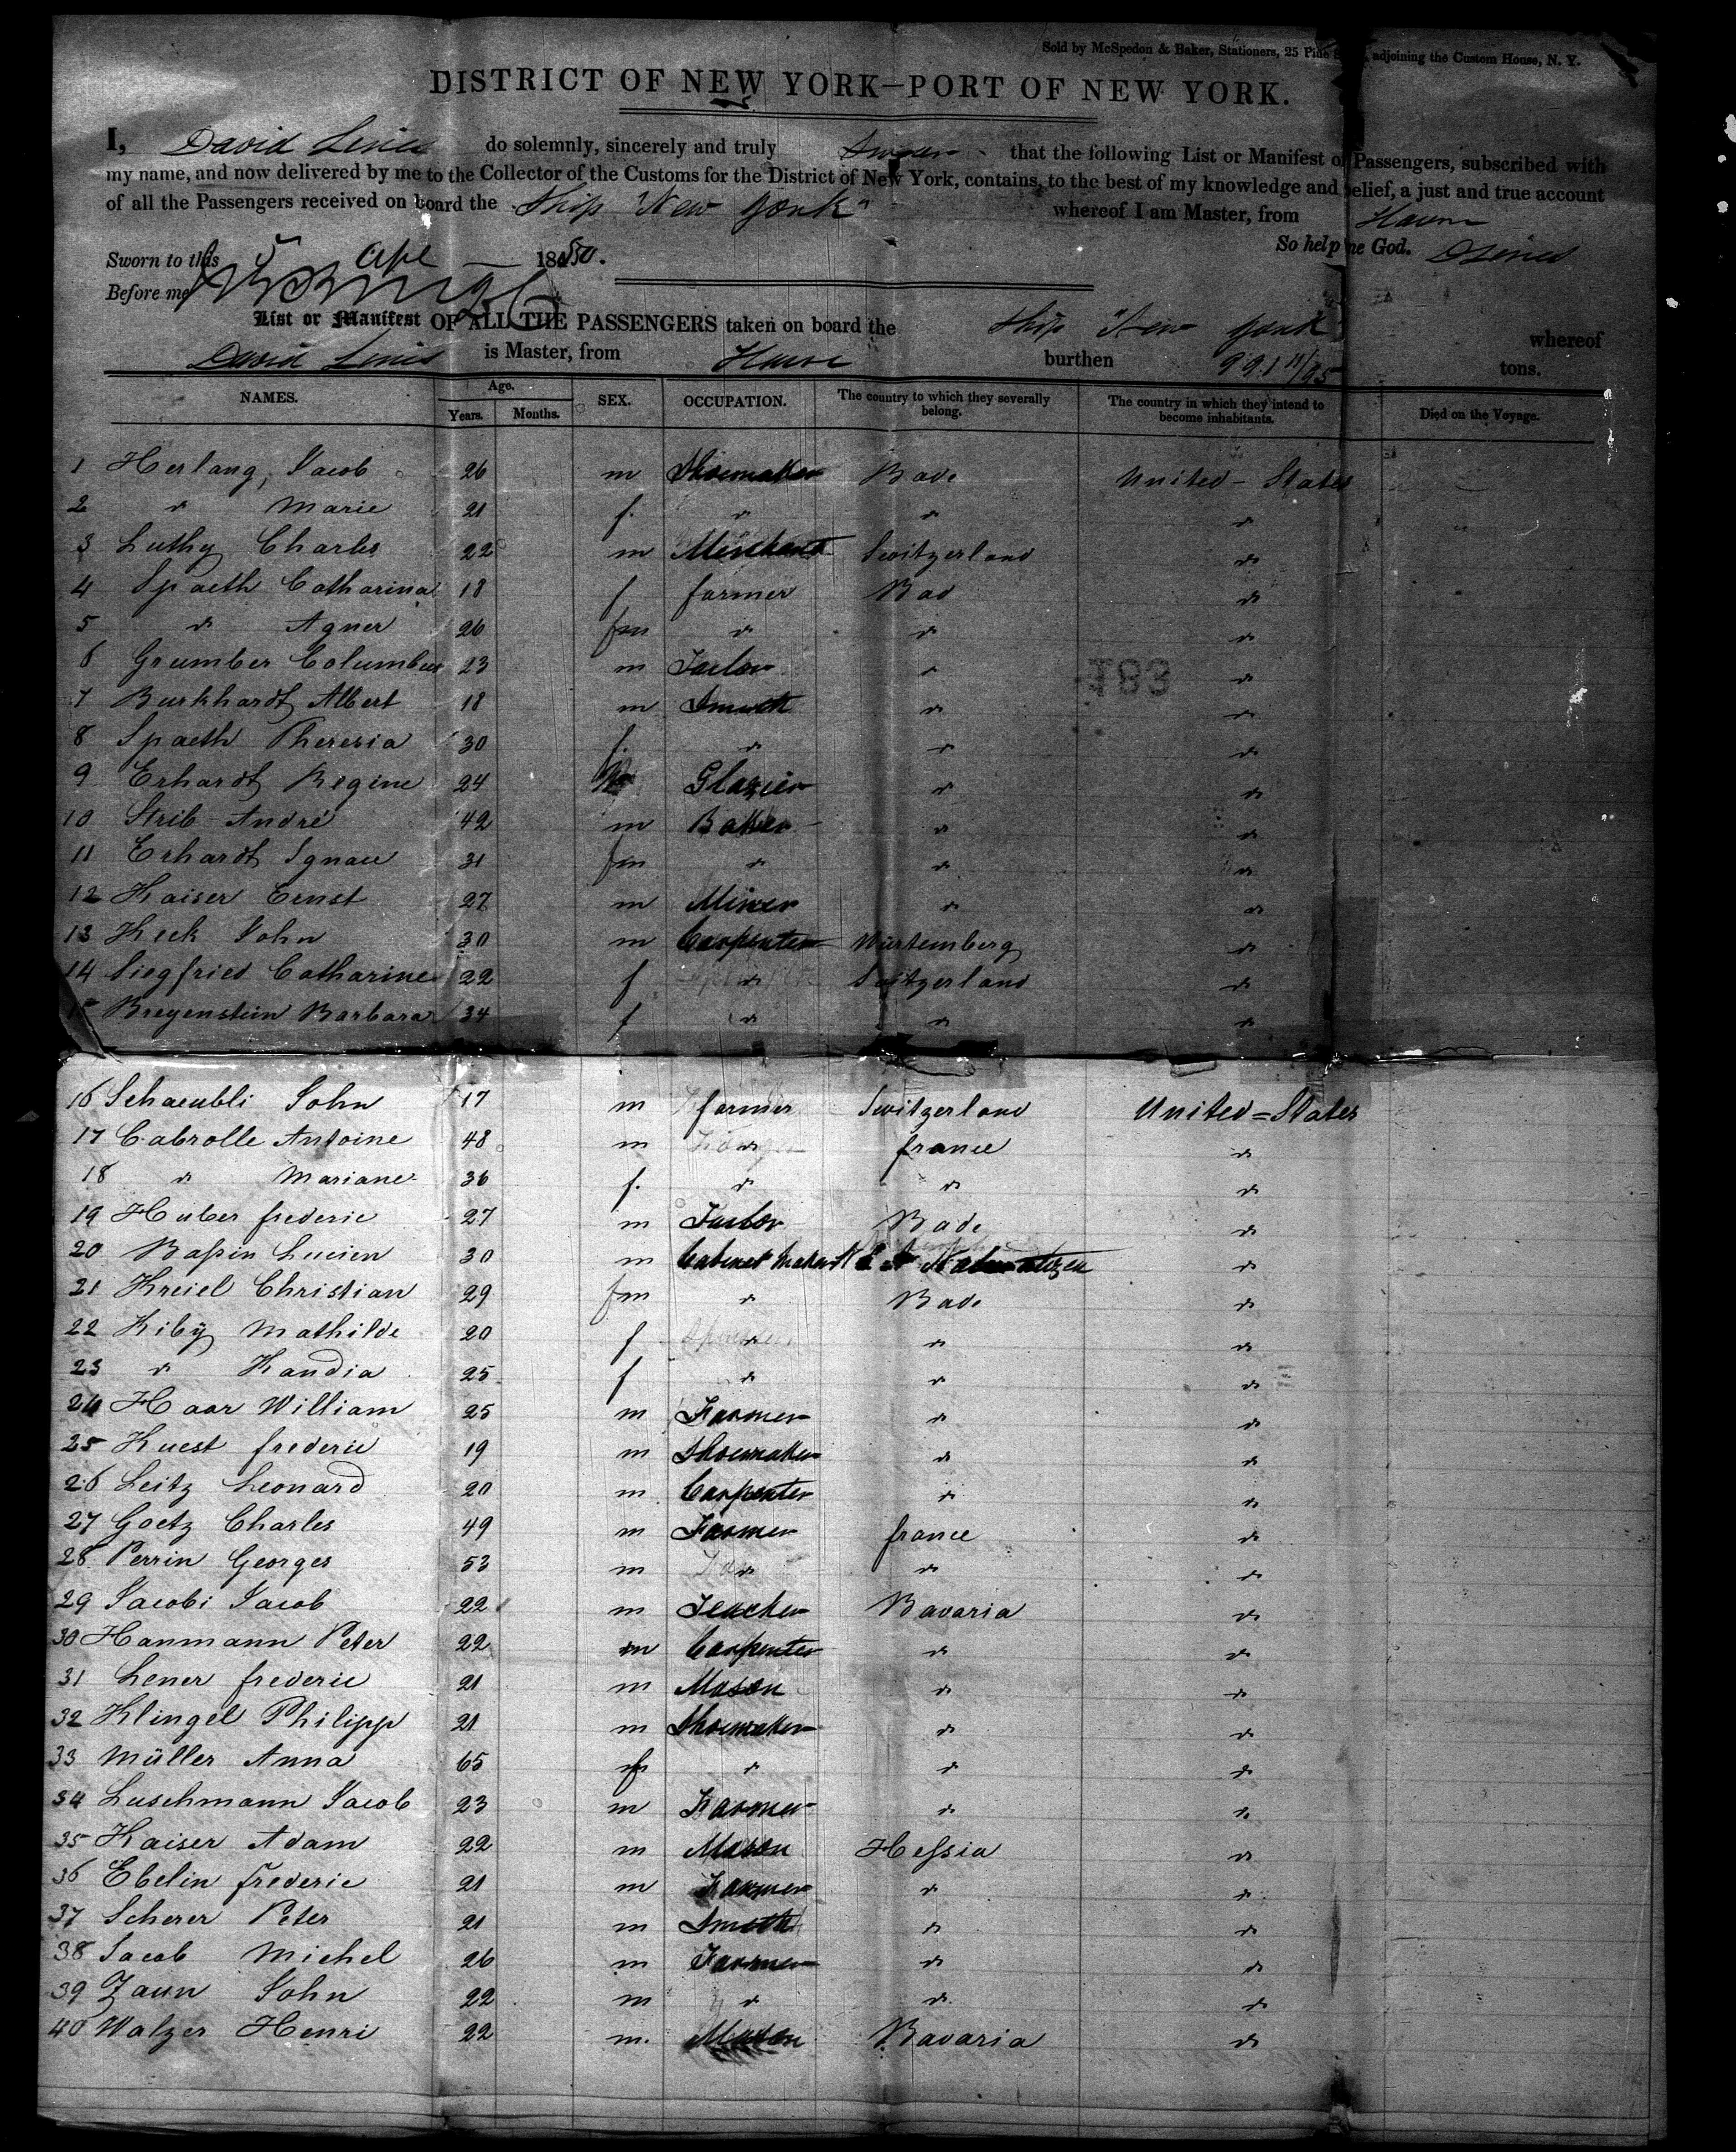 Sold by McSpedon & Baker, Stationers, 25 Pine adjoining the Custom House, N. Y.
DISTRICT OF NEW YORK—PORT OF NEW YORK.
I, David do solemnly, sincerely and truly Swear that the following List or Manifest of Passengers, subscribed with
my name, and now delivered by me to the Collector of the Customs for the District of New York, contains, to the best of my knowledge and belief, a just and true account
of all the Passengers received on board the Ship "New York" whereof I am Master, from Havre
So help me God.
Sworn to this 5 Apl 1850.
Before me
List or Manifest OF ALL THE PASSENGERS taken on board the Ship "New York" whereof
David is Master, from Havre burthen 991 11/95 tons.
NAMES. Age. Years. Months. SEX. OCCUPATION. The country to which they severally belong. The country in which they intend to become inhabitants. Died on the Voyage.
1 Herlang, Jacob 26 m Shoemaker Bade United-States
2 " Marie 21 f. " " "
3 Luthy Charles 22 m Merchant Switzerland "
4 Spaeth Catharina 18 f farmer Bad "
5 " Agner 26 fm " " "
6 Grumber Columbus 23 m Tailor " "
183
7 Burkhardt Albert 18 m Smith " "
8 Spaeth Theresia 30 f. " " "
9 Erhardt Regine 24 Glazier " "
10 Strib André 42 m Baker " "
11 Erhardt Ignace 31 fm " " "
12 Kaiser Ernst 27 m Miner " "
13 Keck John 30 m Carpenter Würtemberg "
14 Siegfried Catharine 22 f " Switzerland "
15 Bregenstein Barbara 34 f " " "
16 Schaeubli John 17 m farmer Switzerland United=States
17 Cabrolle Antoine 48 m " france "
18 " Mariane 36 f. " " "
19 Huber frederic 27 m Tailor Bade "
20 Bassin Lucien 30 m Cabinet Maker "
21 Kreiel Christian 29 fm " Bade "
22 Kiby Mathilde 20 f " " "
23 " Kandia 25 f " " "
24 Haar William 25 m Farmer " "
25 Kuest frederic 19 m Shoemaker " "
26 Leitz Leonard 20 m Carpenter " "
27 Goetz Charles 49 m Farmer france "
28 Perrin Georges 53 m " " "
29 Jacobi Jacob 22 m Teacher Bavaria "
30 Hanmann Peter 22 m Carpenter " "
31 Lener frederic 21 m Mason " "
32 Klingel Philipp 21 m Shoemaker " "
33 Müller Anna 65 f " " "
34 Luschmann Jacob 23 m Farmer " "
35 Kaiser Adam 22 m Mason Hessia "
36 Ebelin frederic 21 m Farmer " "
37 Scherer Peter 21 m Smith " "
38 Jacob Michel 26 m Farmer " "
39 Zaun John 22 m " " "
40 Walzer Henri 22 m. Mason Bavaria "